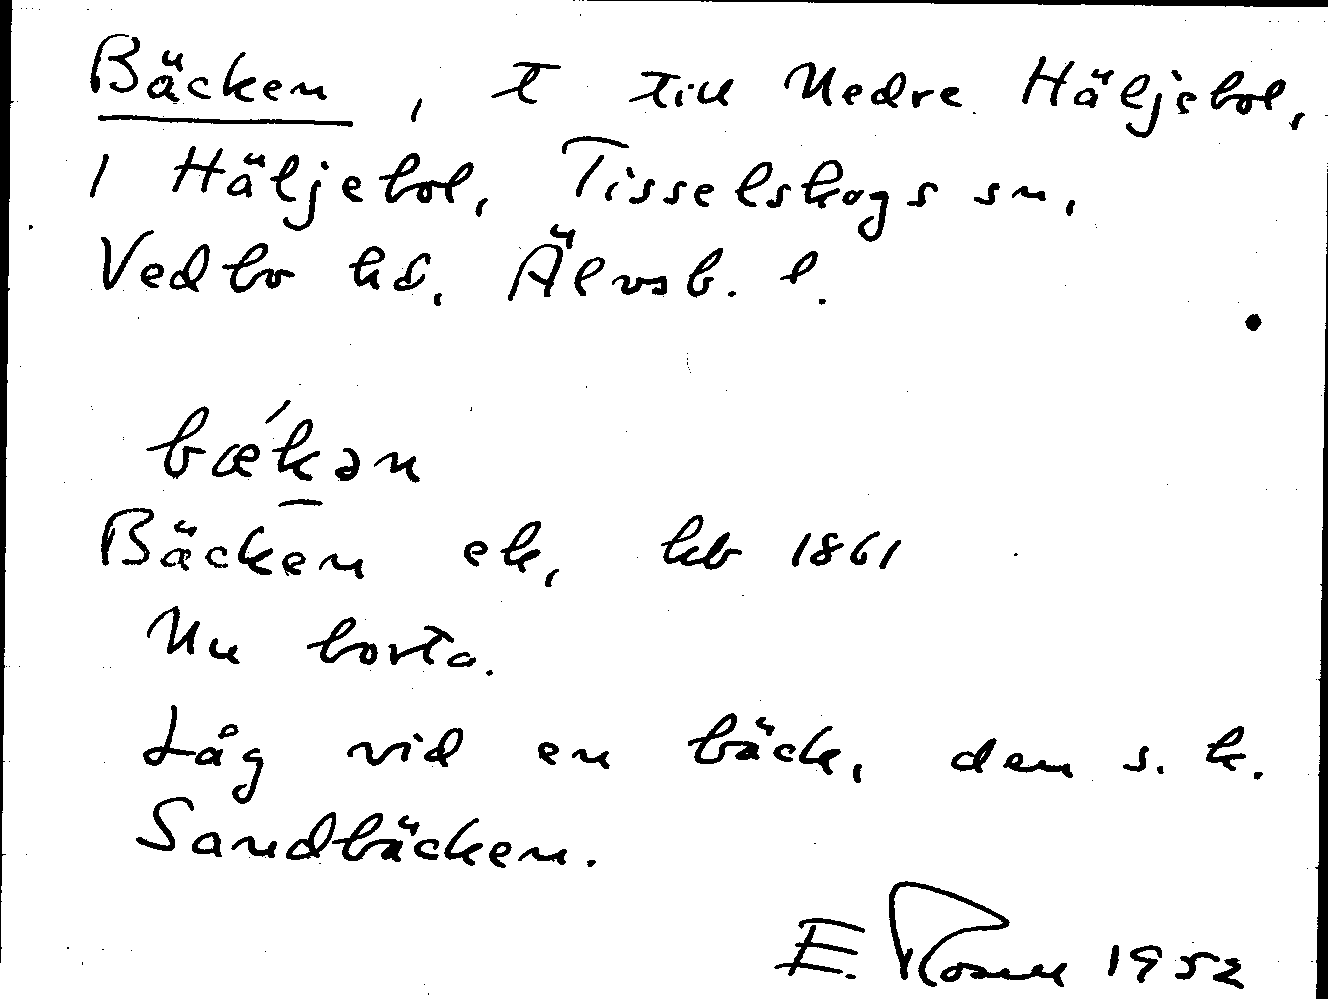 Bäcken, t till Nedre Häljebol,
1 Häljebol, Tisselskogs sn,
Vedbo hd, Älvsb. l.
bǽk̲ən
Bäcken ek, kb 1861
Nu borta.
Låg vid en bäck, den s. k.
Sandbäcken.
E. Rosell 1952